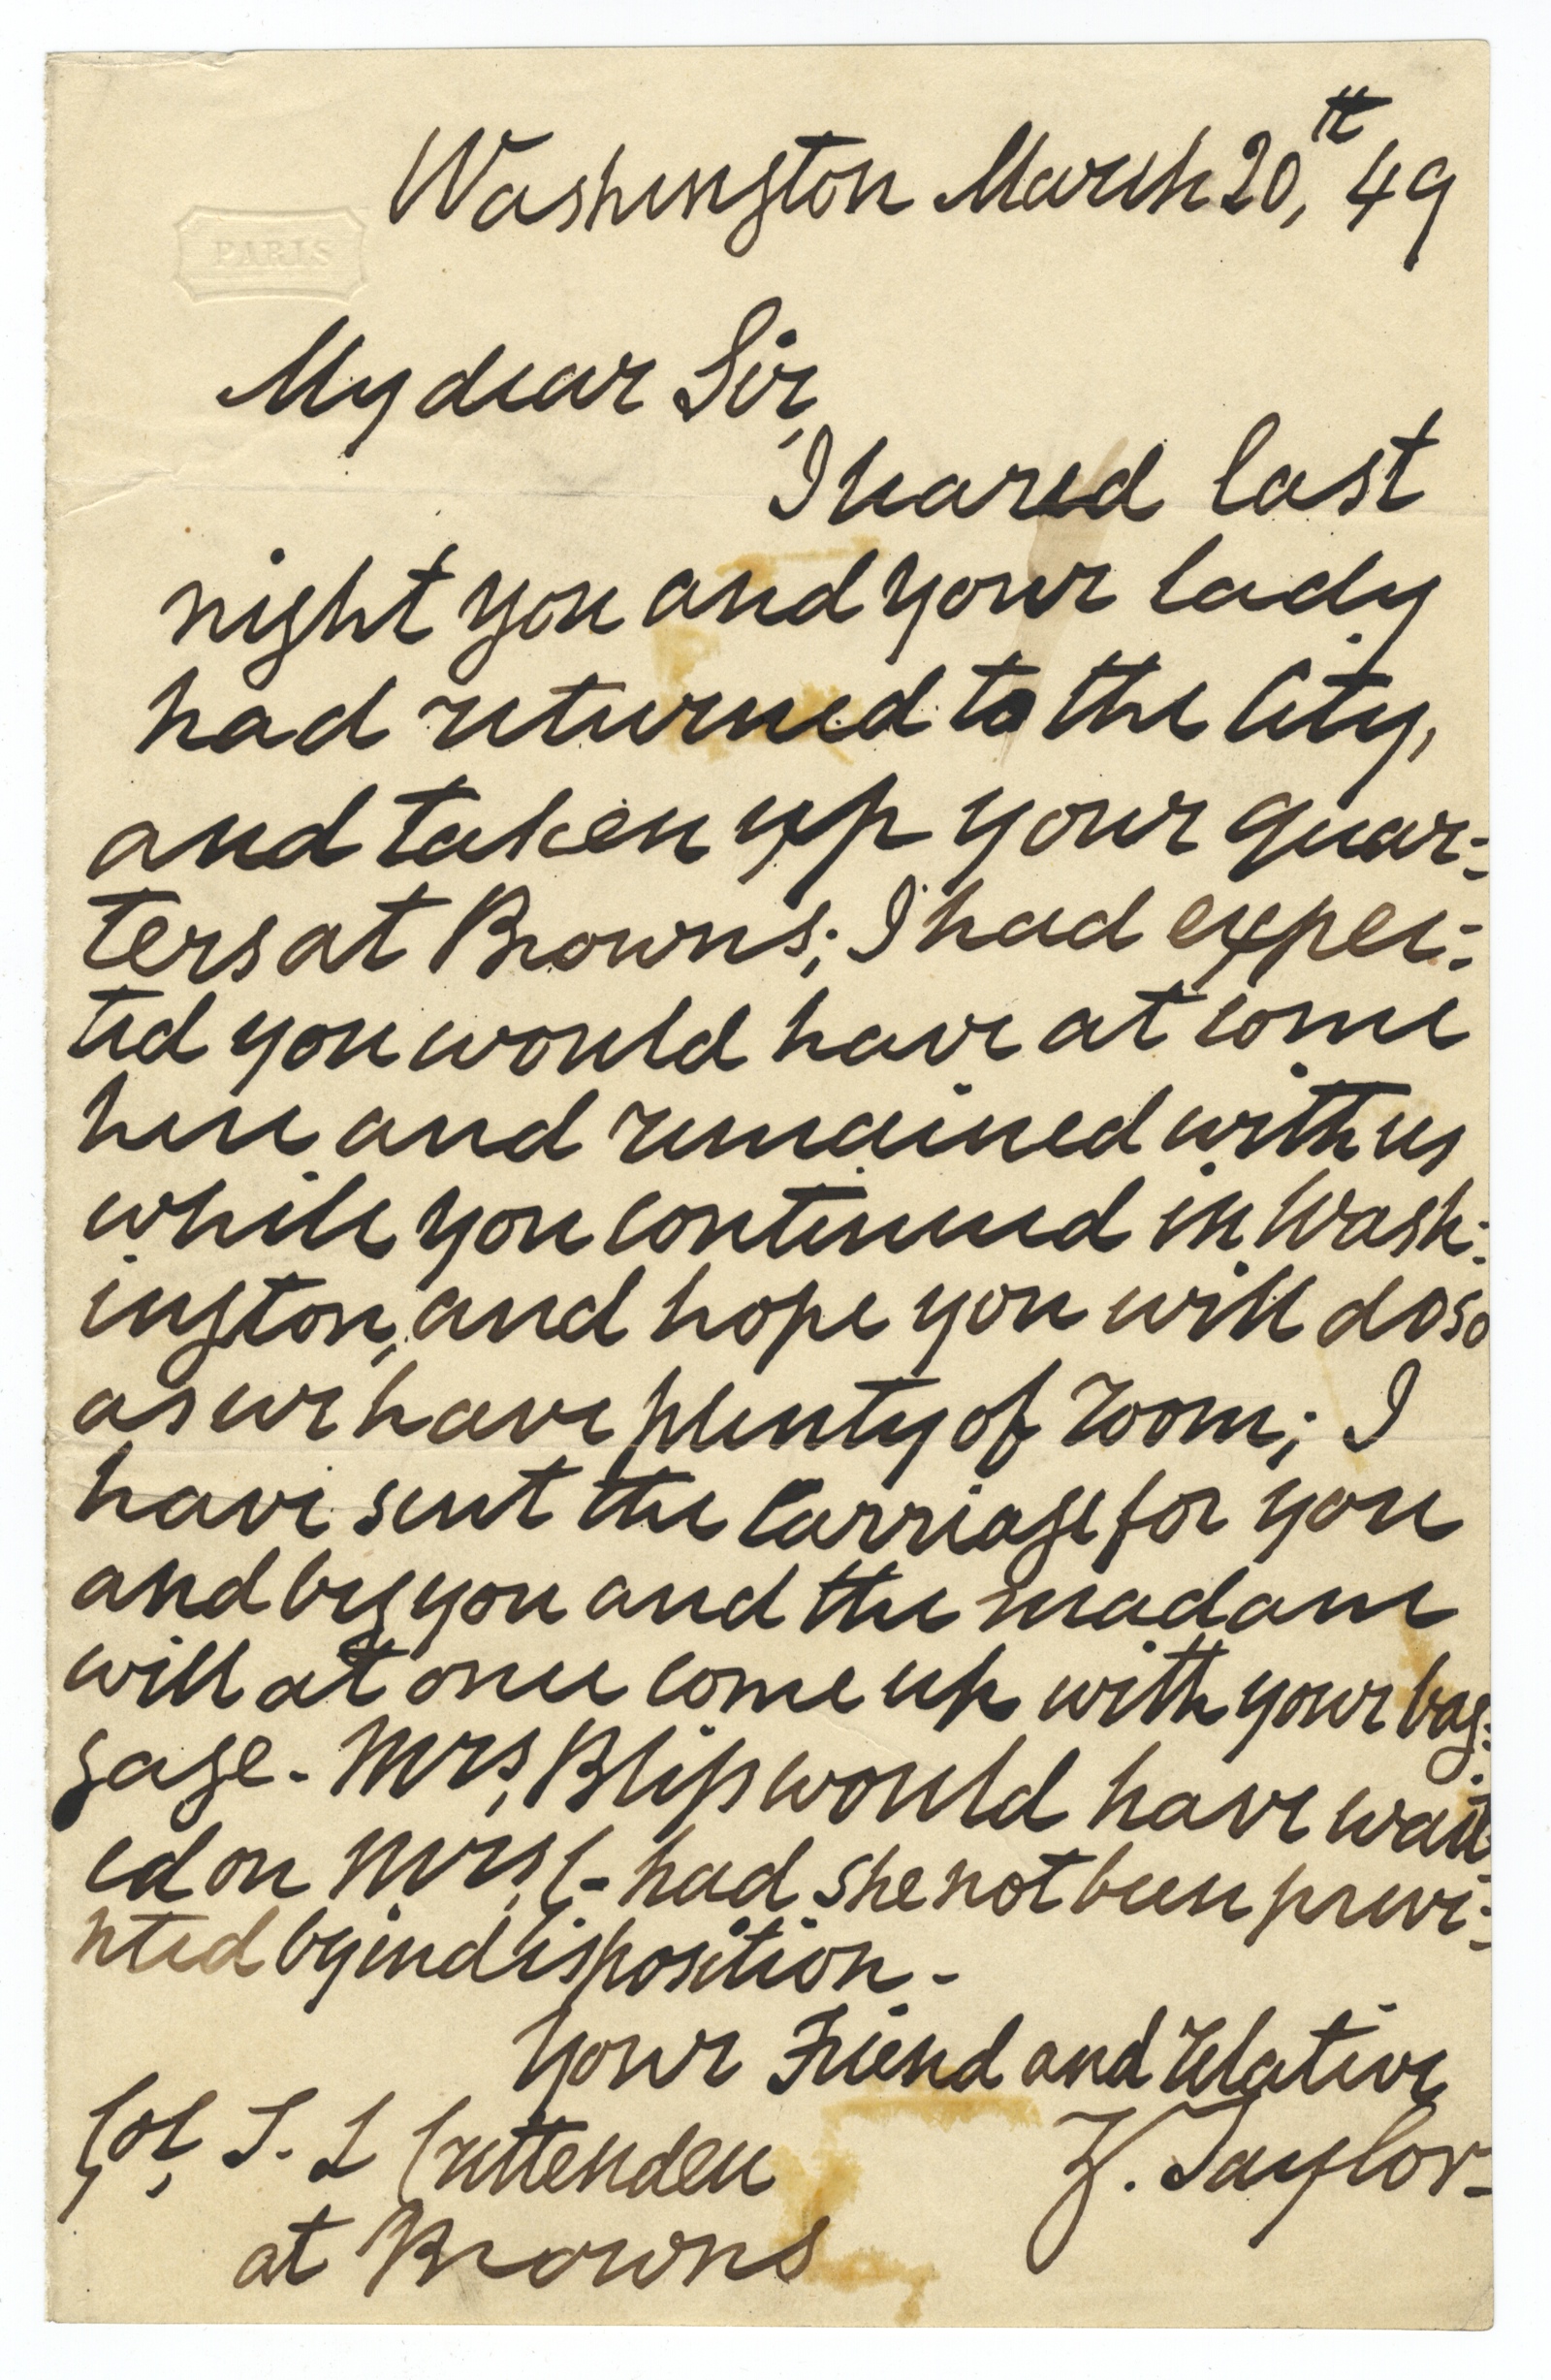 PARIS
Washington March 20,th 49
My dear Sir,
I heared last
night you and your lady
had returned to the City,
and taken up your quar=
ters at Browns; I had expec=
ted you would have at come
here and remained with us
while you continued in Wash=
ington, and hope you will do so
as we have plenty of room; I
have sent the Carriage for you
and beg you and the madam
will at once come up with your bag=
gage - Mrs, Bliss would have wait=
ed on Mrs, C- had she not been preve=
nted by indisposition -
Your Friend and relative
Z. Taylor-
Col, T. L Crittenden
at Browns